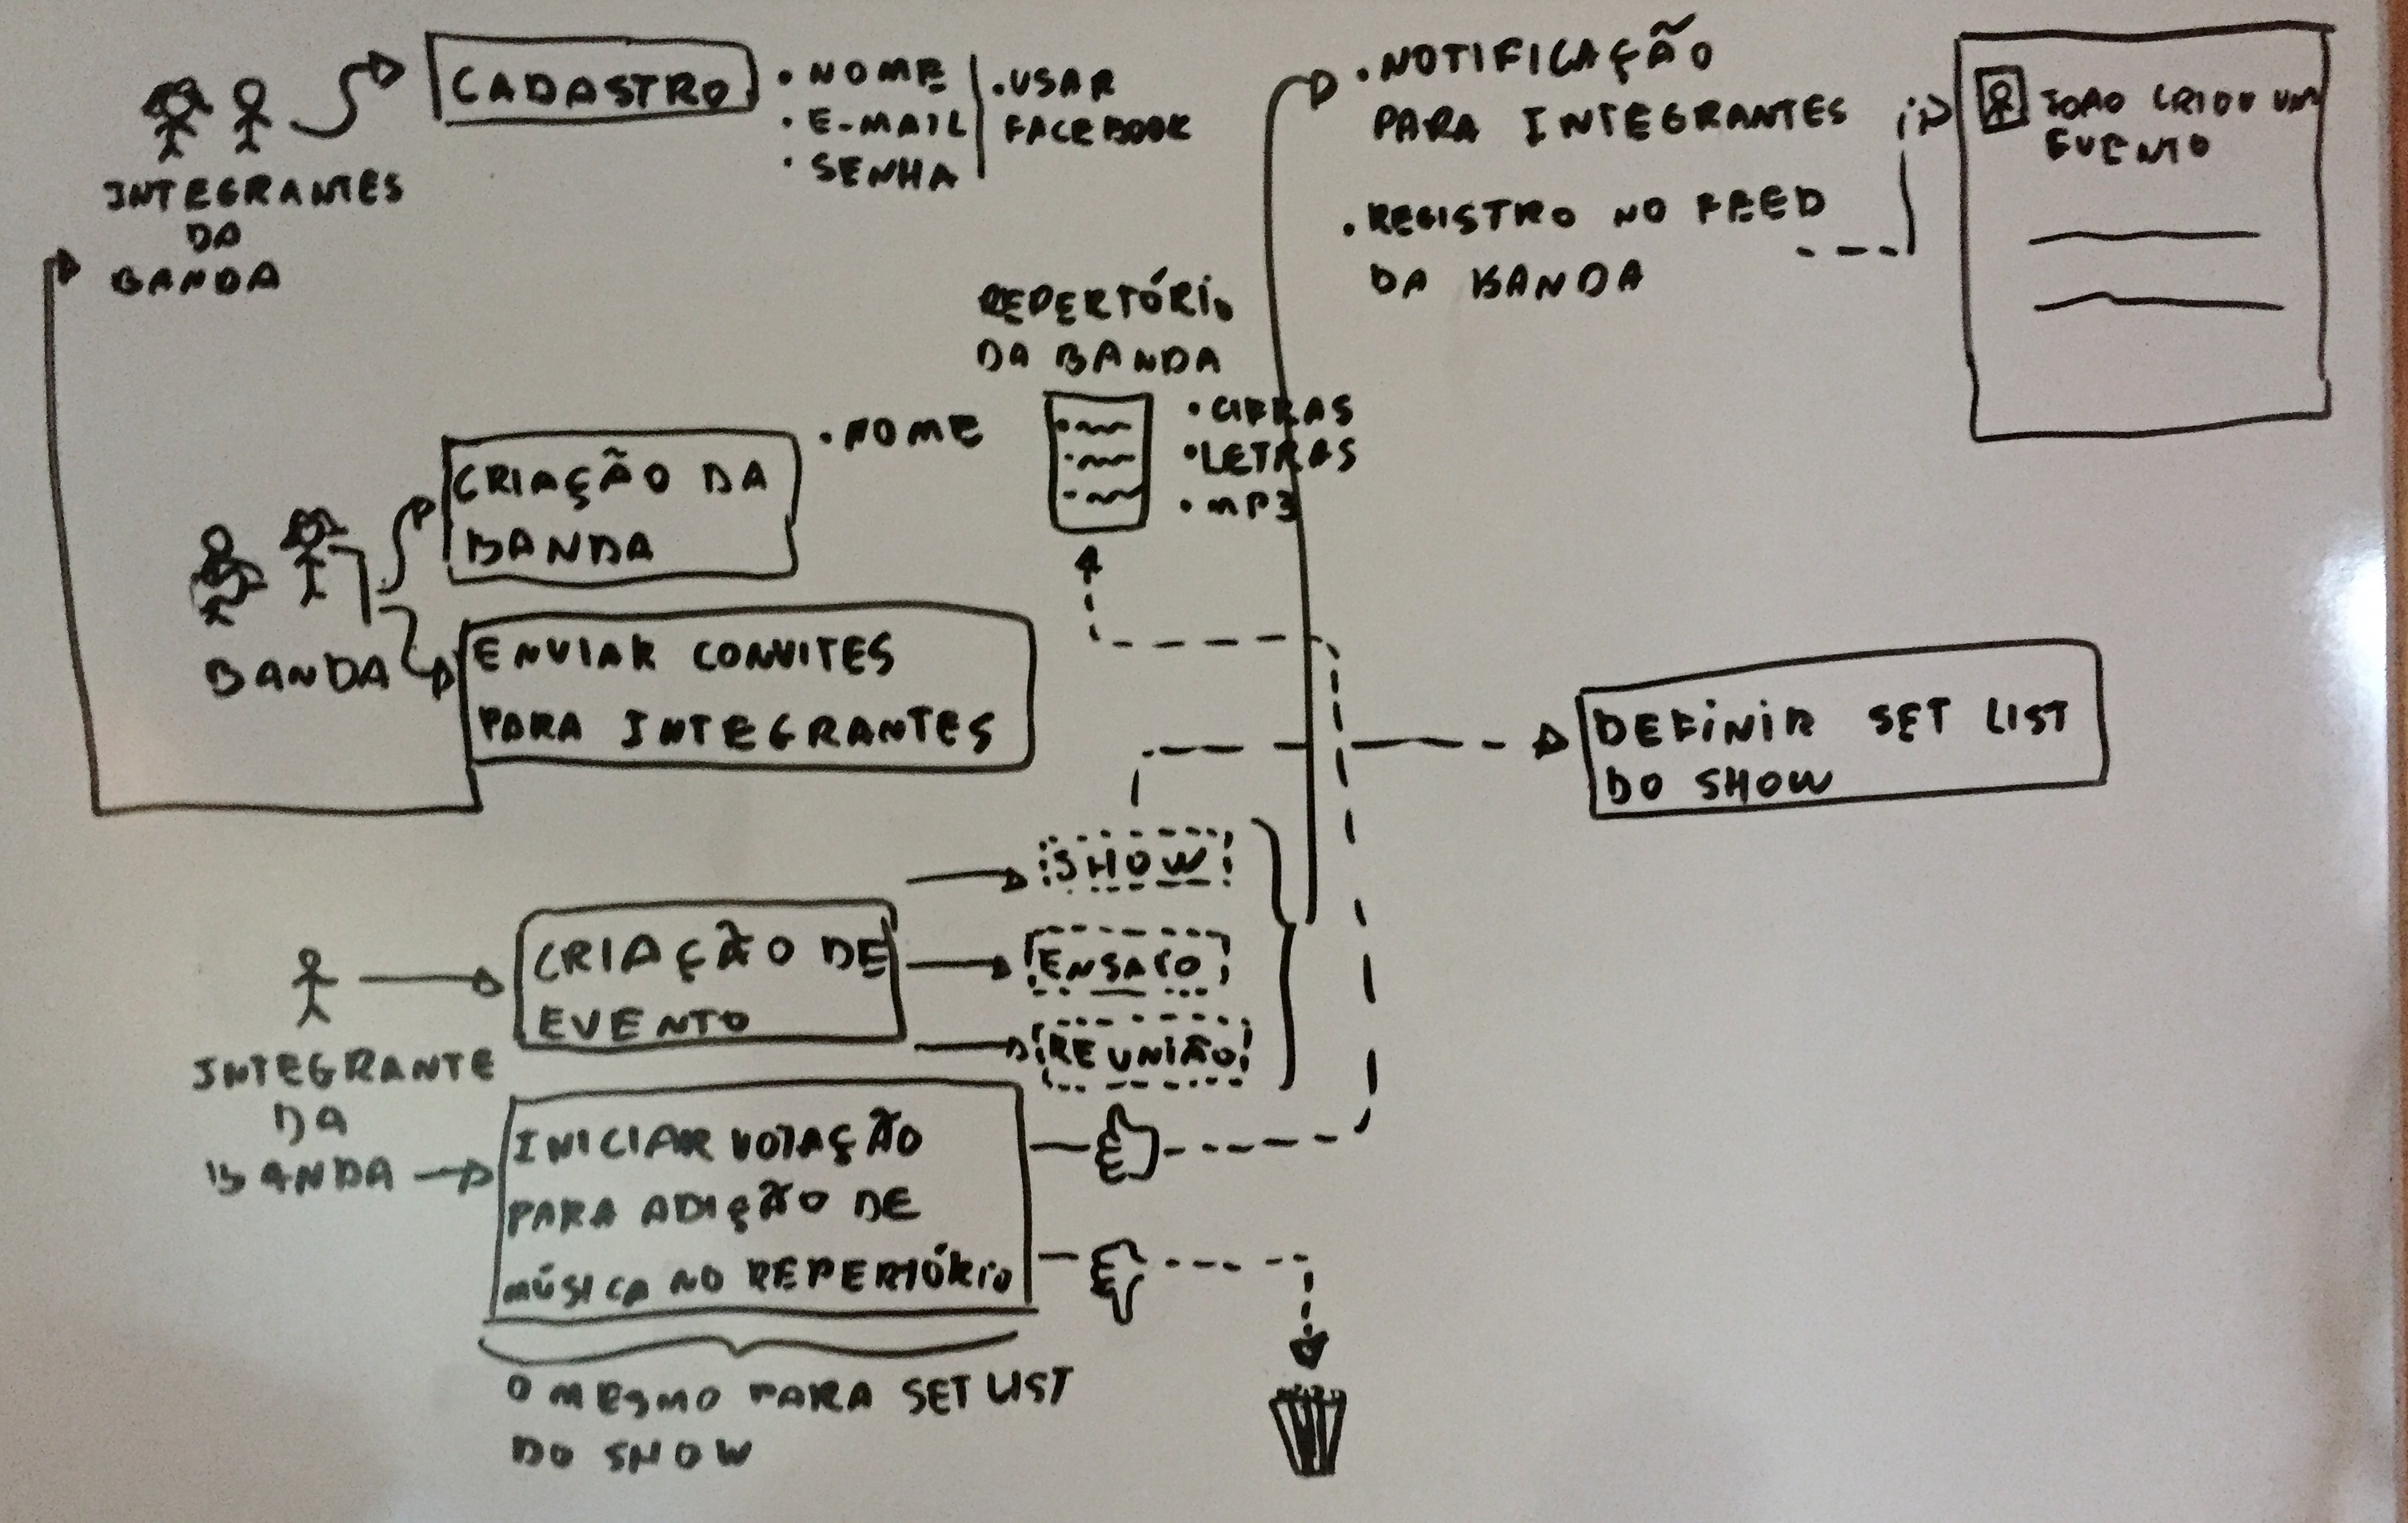 INTEGRANTES
DA
BANDA
CADASTRO
• NOME
• E-MAIL
• SENHA
• USAR
FACEBOOK
• NOTIFICAÇÃO
PARA INTEGRANTES
• REGISTRO NO FEED
DA BANDA
JOÃO CRIOU UM
EVENTO
REPERTÓRIO
DA BANDA
• CIFRAS
• LETRAS
• MP3
BANDA
CRIAÇÃO DA
BANDA
• NOME
ENVIAR CONVITES
PARA INTEGRANTES
DEFINIR SET LIST
DO SHOW
INTEGRANTE
DA
BANDA
CRIAÇÃO DE
EVENTO
SHOW
ENSAIO
REUNIÃO
INICIAR VOTAÇÃO
PARA ADIÇÃO DE
MÚSICA NO REPERTÓRIO
O MESMO PARA SET LIST
DO SHOW